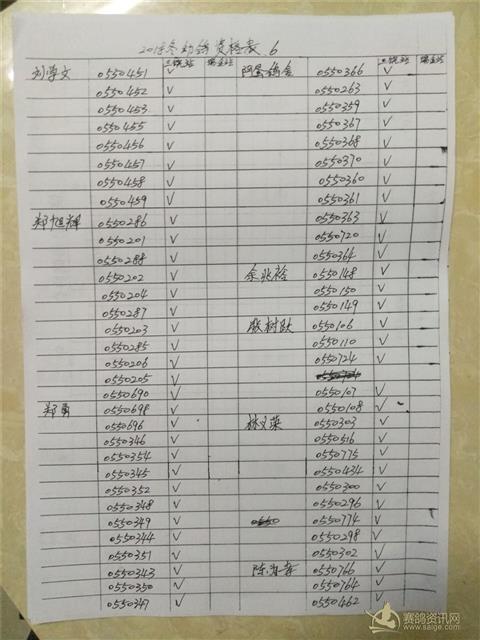 2018冬幼鸽资格表 6
三관站 瑞金站 三관站 瑞金站
刘学文 0550451 √ 阿金鸽舍 0550366 √
0550452 √ 0550263 √
0550453 √ 0550359 √
0550455 √ 0550367 √
0550456 √ 0550368 √
0550457 √ 0550370 √
0550458 √ 0550360 √
0550459 √ 0550361 √
郑旭辉 0550286 √ 0550363 √
0550201 √ 0550720 √
0550288 √ 0550364 √
0550202 √ 余兆裕 0550148 √
0550204 √ 0550150 √
0550287 √ 0550149 √
0550203 √ 殷树跃 0550106 √
0550285 √ 0550110 √
0550206 √ 0550724 √
0550205 √
0550690 √ 0550107 √
郑勇 0550698 √ 0550108 √
0550696 √ 林义荣 0550303 √
0550346 √ 0550516 √
0550354 √ 0550775 √
0550345 √ 0550434 √
0550352 √ 0550300 √
0550348 √ 0550296 √
0550349 √ 0550774 √
0550344 √ 0550298 √
0550351 √ 0550302 √
0550343 √ 陈 0550766 √
0550350 √ 0550764 √
0550347 √ 0550462 √
赛鸽资讯网
www.saige.com